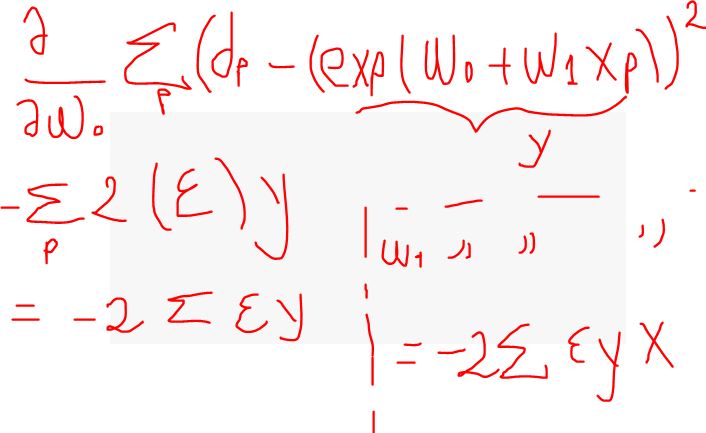 ∂/∂w₀ Σ_p (d_p - (exp(w₀ + w₁x_p))²
y
-Σ_p 2 (ε) y
= -2 Σ ε y
w₁ ,, ,, ,,
= -2 Σ ε y x